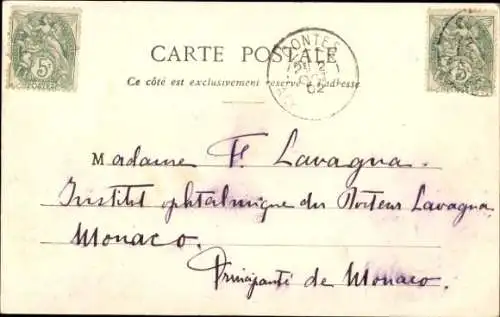 CARTE POSTALE
Ce côté est exclusivement réservé à l'adresse
CONTES
2
02
5
Madame F. Lavagna.
Institut ophtalmique du Docteur Lavagna
Monaco.
Principauté de Monaco.